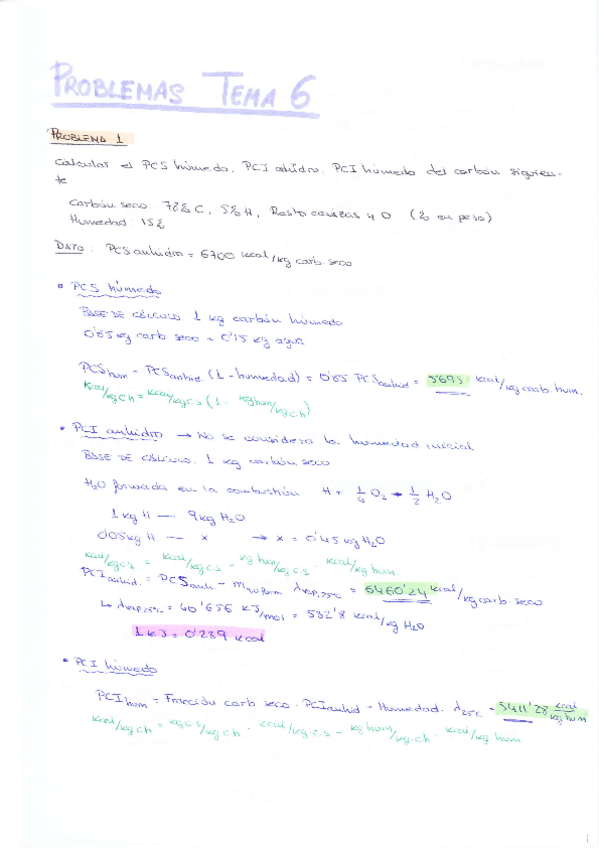 PROBLEMAS TEMA 6
PROBLEMA 1
Calcular el PCS húmedo, PCI anhidro, PCI húmedo del carbón siguien-
te.
Carbón seco: 78% C, 5% H, Resto cenizas y O (% en peso)
Humedad: 15%
DATO: PCS anhidro = 6700 kcal/kg carb. seco
• PCS húmedo
BASE DE CÁLCULO: 1 kg carbón húmedo
0'85 kg carb seco + 0'15 kg agua
PCS hum = PCS anhid (1 - humedad) = 0'85 PCS anhid = 5695 kcal/kg carb. hum.
kcal/kg ch = kcal/kg cs (1 - kg hum/kg ch)
• PCI anhidro → No se considera la humedad inicial
BASE DE CÁLCULO: 1 kg carbón seco
H2O formada en la combustión: H + 1/4 O2 → 1/2 H2O
1 kg H — 9 kg H2O
0'05 kg H — x → x = 0'45 kg H2O
kcal/kg c.s = kcal/kg c.s - kg hum/kg c.s · kcal/kg hum
PCI anhid. = PCS anh - m H2O form λvap, 25ºC = 6460'24 kcal/kg carb. seco
↳ λvap, 25ºC = 40'656 kJ/mol = 532'8 kcal/kg H2O
1 kJ = 0'239 kcal
• PCI húmedo
PCI hum = Fracción carb seco · PCI anhid - Humedad · λ25ºC = 5411'28 kcal/kg hum
kcal/kg ch = kg cs/kg ch · kcal/kg c.s - kg hum/kg ch · kcal/kg hum